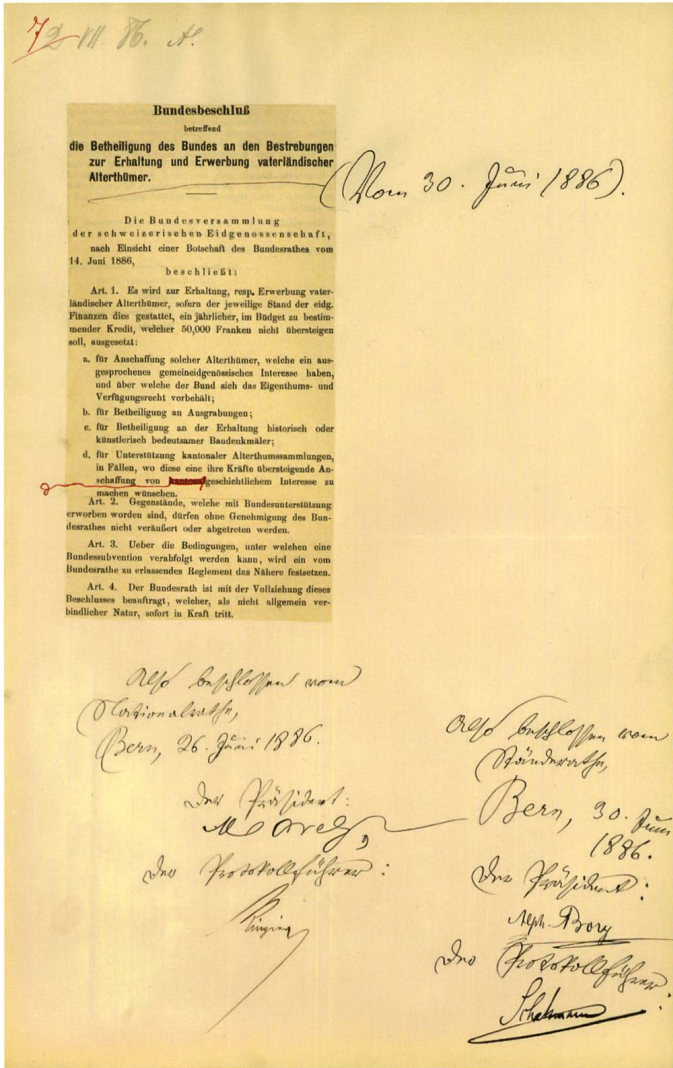 7
VII. 86. A.
Bundesbeschluß
betreffend
die Betheiligung des Bundes an den Bestrebungen
zur Erhaltung und Erwerbung vaterländischer
Alterthümer.
(Vom 30. Juni 1886).
Die Bundesversammlung
der schweizerischen Eidgenossenschaft,
nach Einsicht einer Botschaft des Bundesrathes vom
14. Juni 1886,
beschließt:
Art. 1. Es wird zur Erhaltung, resp. Erwerbung vater-
ländischer Alterthümer, sofern der jeweilige Stand der eidg.
Finanzen dies gestattet, ein jährlicher, im Budget zu bestim-
mender Kredit, welcher 50,000 Franken nicht übersteigen
soll, ausgesetzt:
a. für Anschaffung solcher Alterthümer, welche ein aus-
gesprochenes gemeineidgenössisches Interesse haben,
und über welche der Bund sich das Eigenthums- und
Verfügungsrecht vorbehält;
b. für Betheiligung an Ausgrabungen;
c. für Betheiligung an der Erhaltung historisch oder
künstlerisch bedeutsamer Baudenkmäler;
d. für Unterstützung kantonaler Alterthumssammlungen,
in Fällen, wo diese eine ihre Kräfte übersteigende An-
schaffung von geschichtlichem Interesse zu
machen wünschen.
Art. 2. Gegenstände, welche mit Bundesunterstützung
erworben worden sind, dürfen ohne Genehmigung des Bun-
desrathes nicht veräußert oder abgetreten werden.
Art. 3. Ueber die Bedingungen, unter welchen eine
Bundessubvention verabfolgt werden kann, wird ein vom
Bundesrathe zu erlassendes Reglement das Nähere festsetzen.
Art. 4. Der Bundesrath ist mit der Vollziehung dieses
Beschlusses beauftragt, welcher, als nicht allgemein ver-
bindlicher Natur, sofort in Kraft tritt.
Also beschlossen vom
Nationalrathe,
Bern, 26. Juni 1886.
Der Präsident:
Der Protokollführer:
Ringier
Also beschlossen vom
Ständerathe,
Bern, 30. Juni
1886.
Der Präsident:
Alph. Bory
Der Protokollführer:
Schatzmann